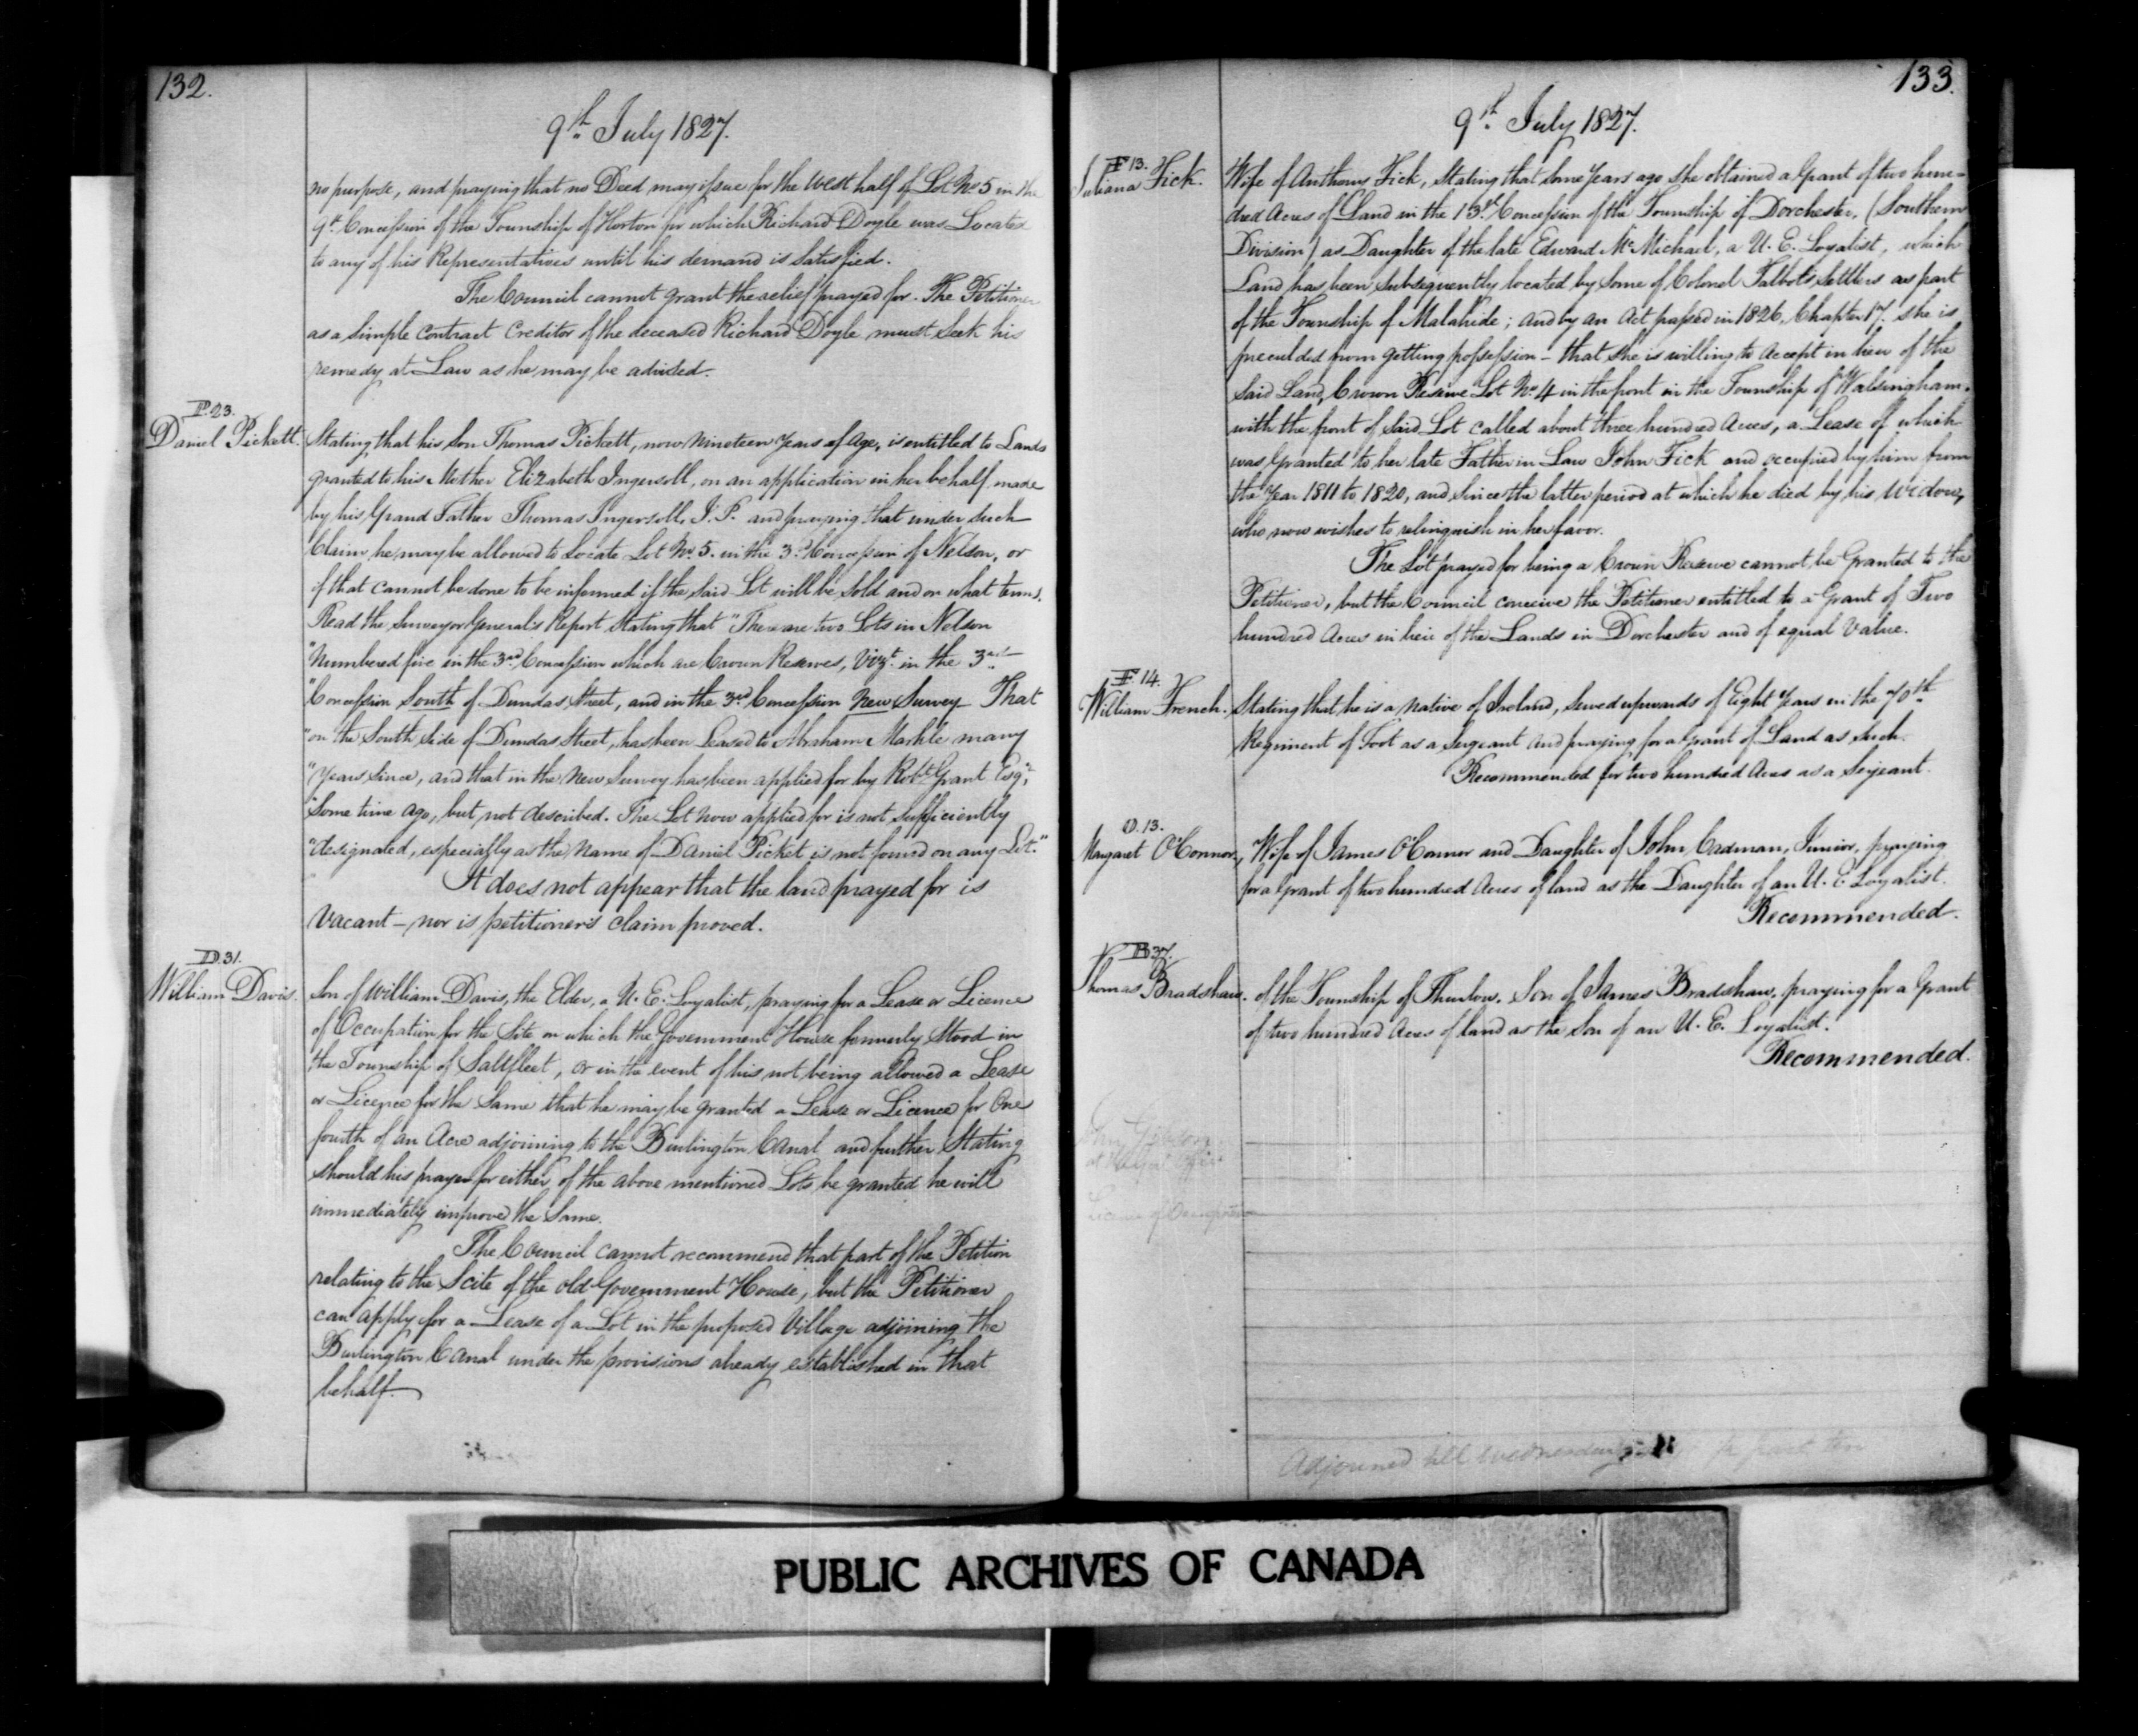 132.
9th July 1827.
no purpose, and praying that no Deed may issue for the West half of Lot No 5 in the
9th Concession of the Township of Horton for which Richard Doyle was Located
to any of his Representatives until his demand is Satisfied.
The Council cannot grant the relief prayed for. The Petitioner
as a Simple Contract Creditor of the deceased Richard Doyle must Seek his
remedy at Law as he may be advised.
P. 23.
Daniel Pickett.
Stating that his Son Thomas Pickett, now Nineteen Years of Age, is entitled to Lands
granted to his Mother Elizabeth Ingersoll, on an application in her behalf made
by his Grand Father Thomas Ingersoll, J. P. and praying that under such
Claim he may be allowed to Locate Lot No. 5. in the 3rd Concession of Nelson, or
if that cannot be done to be informed if the Said Lot will be Sold and on what terms.
Read the Surveyor General's Report Stating that "There are two Lots in Nelson
"Numbered five in the 3rd Concession which are Crown Reserves, Vizt. in the 3rd
"Concession South of Dundas Street, and in the 3rd Concession New Survey That
"on the South Side of Dundas Street, has been Leased to Abraham Markle many
"Years Since, and that in the New Survey has been applied for by Robt. Grant Esqr.
"Some time ago, but not described. The Lot now applied for is not Sufficiently
"designated, especially as the Name of Daniel Picket is not found on any Lot."
It does not appear that the land prayed for is
Vacant — nor is petitioner's claim proved.
D. 31.
William Davis.
Son of William Davis, the Elder, a U. E. Loyalist, praying for a Lease or Licence
of Occupation for the Site on which the Government House formerly Stood in
the Township of Saltfleet, or in the event of his not being allowed a Lease
or Licence for the Same that he may be granted a Lease or Licence for One
fourth of an Acre adjoining to the Burlington Canal and further Stating
should his prayer for either of the above mentioned Lots be granted he will
immediately improve the Same.
The Council cannot recommend that part of the Petition
relating to the Scite of the old Government House, but the Petitioner
can apply for a Lease of a Lot in the proposed Village adjoining the
Burlington Canal under the provisions already established in that
behalf.
133.
9th July 1827.
F 13.
Juliana Fick.
Wife of Anthony Fick, Stating that Some Years ago She obtained a Grant of two hun-
dred Acres of Land in the 13th Concession of the Township of Dorchester, (Southern
Division) as Daughter of the late Edward McMichael, a U. E. Loyalist, which
Land has been Subsequently located by Some of Colonel Talbot's Settlers as part
of the Township of Malahide; and by an Act passed in 1826, Chapter 17. She is
preculded from getting possession — that She is willing to Accept in lieu of the
Said Land, Crown Reserve Lot No. 4 in the front in the Township of Walsingham,
with the front of Said Lot called about three hundred Acres, a Lease of which
was Granted to her late Father in Law John Fick and occupied by him from
the Year 1811 to 1820, and Since the latter period at which he died by his Widow,
who now wishes to relinquish in her favor.
The Lot prayed for being a Crown Reserve cannot be Granted to the
Petitioner, but the Council conceive the Petitioner entitled to a Grant of Two
hundred Acres in lieu of the Lands in Dorchester and of equal Value.
F. 14.
William French.
Stating that he is a Native of Ireland, Served upwards of Eight Years in the 70th
Regiment of Foot as a Sergeant and praying for a grant of Land as Such.
Recommended for two hundred Acres as a Serjeant.
O. 13.
Margaret O'Connor,
Wife of James O'Connor and Daughter of John Cadman, Junior, praying
for a Grant of two hundred Acres of land as the Daughter of an U. E. Loyalist.
Recommended.
B 37.
Thomas Bradshaw.
of the Township of Thurlow. Son of James Bradshaw, praying for a Grant
of two hundred Acres of land as the Son of an U. E. Loyalist.
Recommended.
Adjourned till Wednesday
PUBLIC ARCHIVES OF CANADA